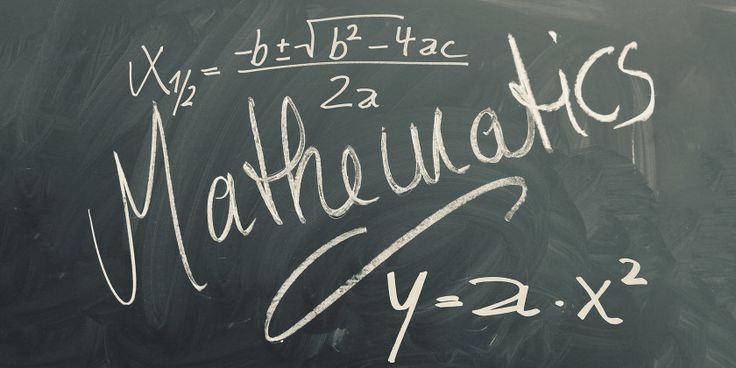 x₁/₂ = -b±√b²-4ac / 2a
Mathematics
y = a · x²